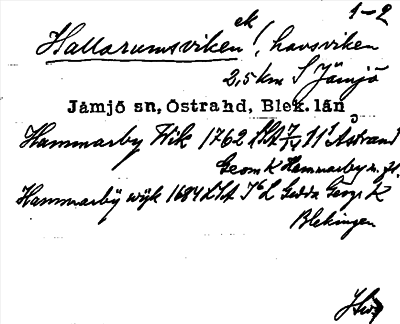 1-2
Hallarumsviken ek!, havsviken
2,5 km S Jämjö
Jämjö sn, Östra hd, Blek. län
Hammarby Wik 1762 LSA
Geom K Hammarby
Hammarbÿ wÿk 1684 LSA Gedda Geogr K
Blekingen